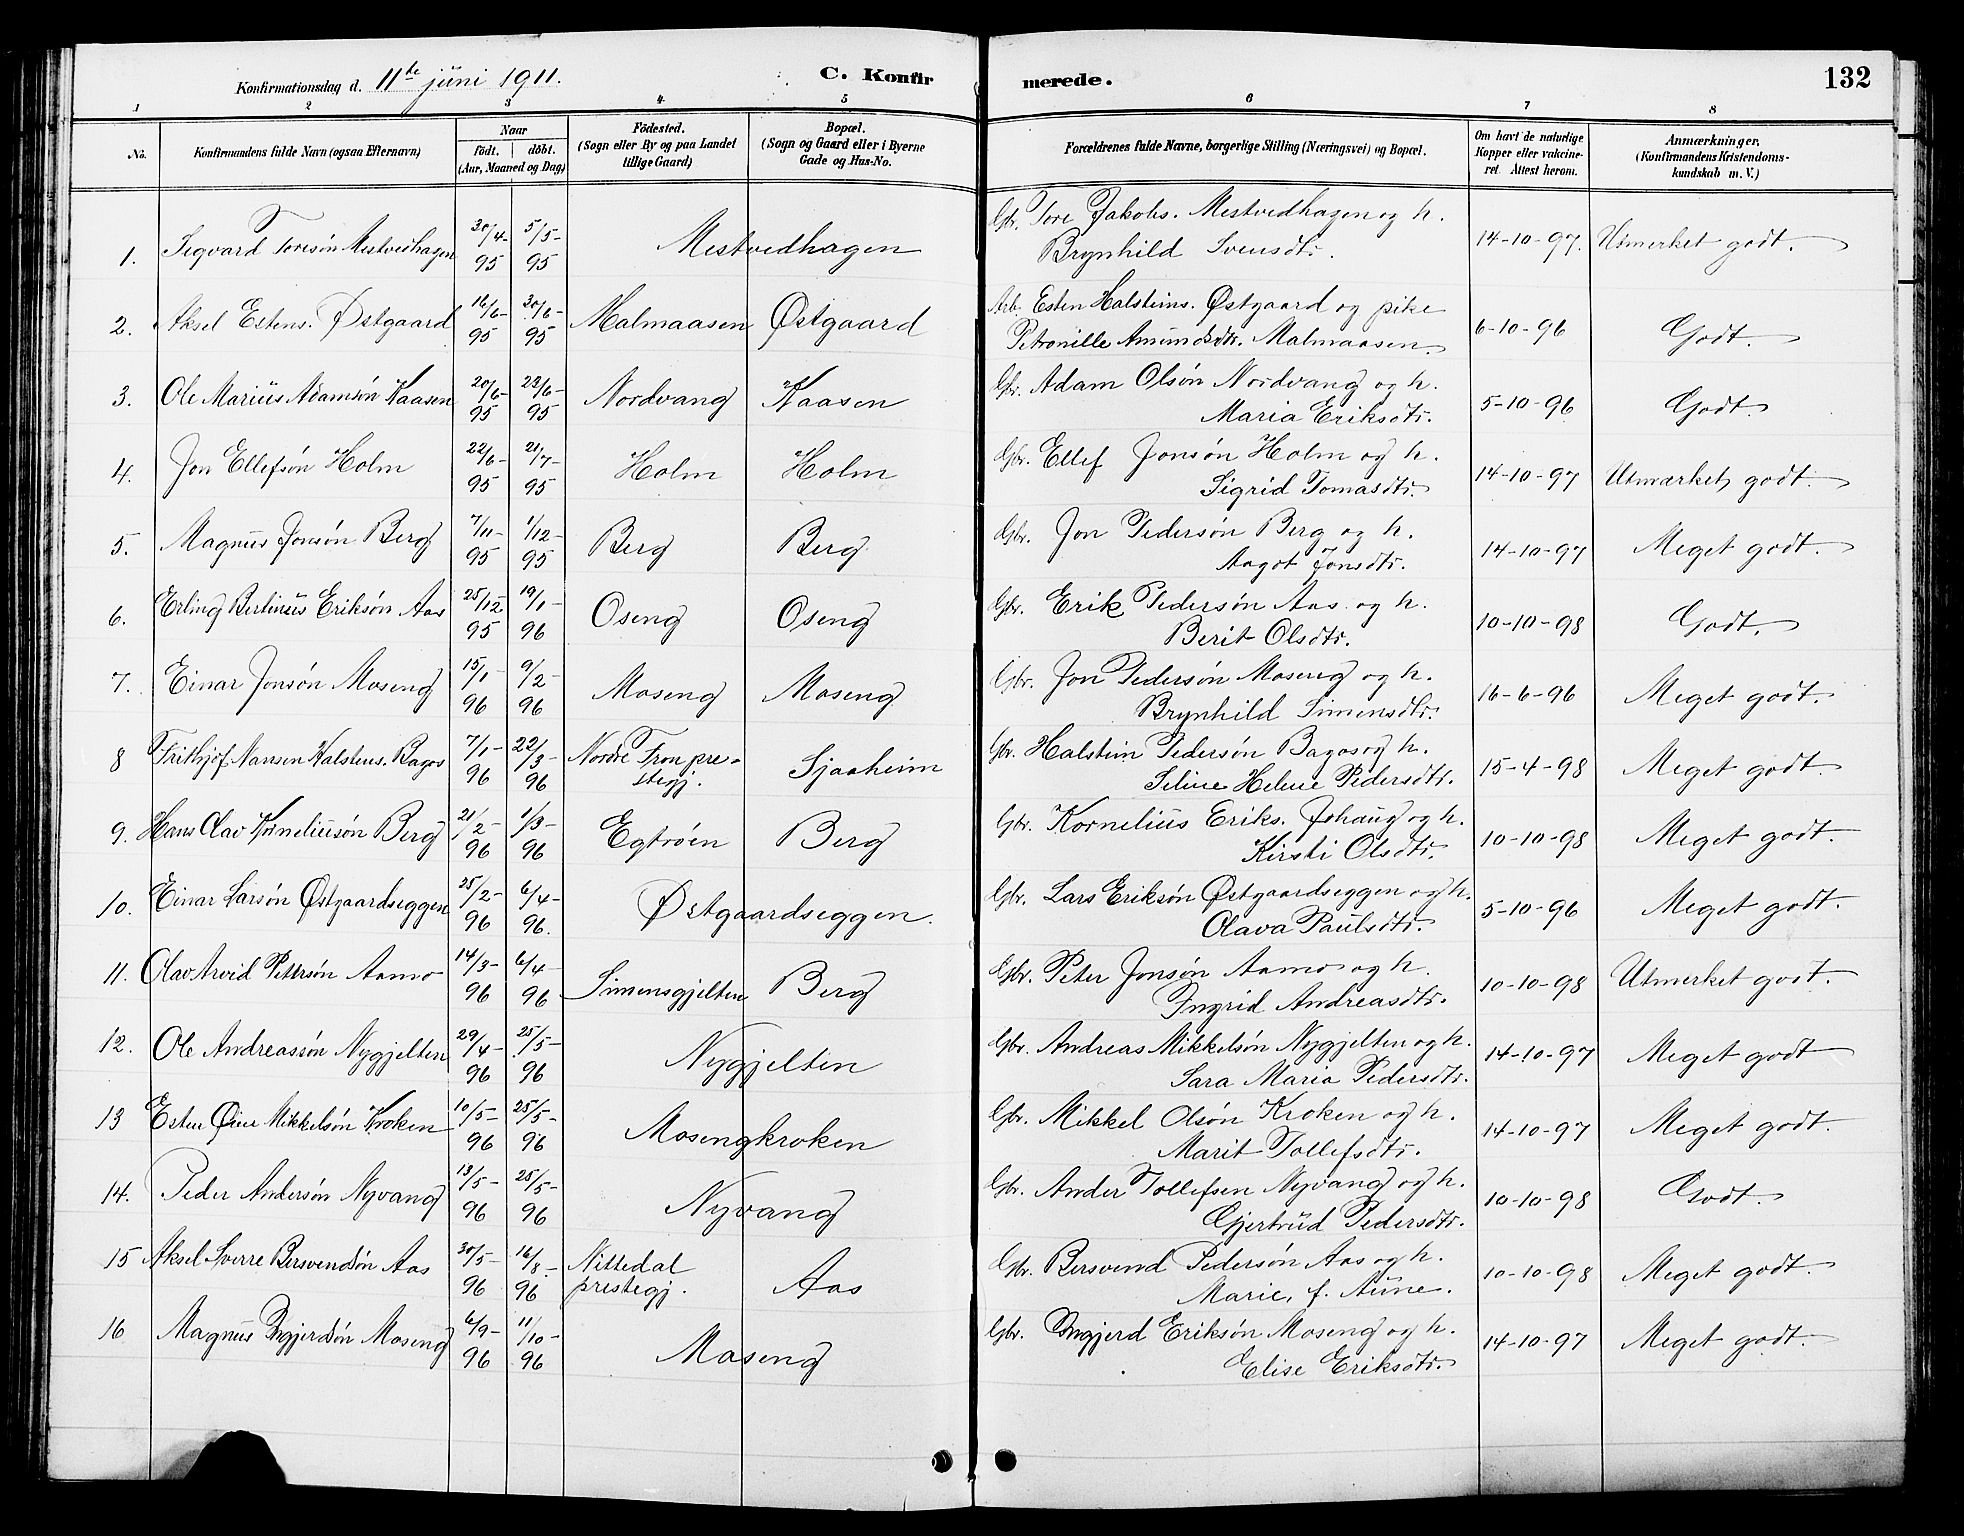 Konfirmationsdag d. 11te juni 1911. C. Konfirmerede. 132
1 2 3 4 5 6 7 8
No. Konfirmandens fulde Navn (ogsaa Efternavn) Naar födt. döbt. (Aar, Maaned og Dag) Födested. (Sogn eller By og paa Landet tillige Gaard) Bopæl. (Sogn og Gaard eller i Byerne Gade og Hus-No. Forældrenes fulde Navne, borgerlige Stilling (Næringsvei) og Bopæl. Om havt de naturlige Kopper eller vakcineret. Attest herom. Anmærkninger. (Konfirmandens Kristendomskundskab m. V.)
1. Sigvard Toresön Mestvedhagen 30/4-95 5/5-95 Mestvedhagen Gbr. Tore Jakobs. Mestvedhagen og h. Brynhild Svensdtr. 14-10-97. Utmerket godt.
2. Aksel Estens. Østgaard 16/6-95 30/6-95 Malmaasen Østgaard Arb. Esten Halsteins. Østgaard og pike Petronille Amundsdtr. Malmaasen. 6-10-96 Godt.
3. Ole Marius Adamsön Kaasen 20/6-95 23/6-95 Nordvang Kaasen Gbr. Adam Olsön Nordvang og h. Maria Eriksdtr. 5-10-96 Godt.
4. Jon Ellefsön Holm 22/6-95 21/7-95 Holm Holm Gbr. Ellef Jonsön Holm og h. Sigrid Tomasdtr. 14-10-97 Utmærket godt.
5. Magnus Jonsön Berg 7/11-95 1/12-95 Berg Berg Gbr. Jon Pedersön Berg og h. Aagot Jonsdtr. 14-10-97 Meget godt.
6. Erling Bertinius Eriksön Aas 25/12 95 19/1-96 Oseng Oseng Gbr. Erik Pedersön Aas og h. Berit Olsdtr. 10-10-98 Godt.
7. Einar Jonsön Moseng 15/1-96 9/2-96 Moseng Moseng Gbr. Jon Pedersön Moseng og h. Brynhild Simensdtr. 16-6-96 Meget godt.
8 Frithjof Nansen Halstens. Bagos 7/1-96 22/3-96 Nordre Fron prestegj. Sjaaheim Gbr. Halstein Pedersön Bagos og h. Seline Helene Pedersdtr. 15-4-98 Meget godt.
9. Hans Olav Korneliusön Berg 21/2-96 1/3-96 Egtröen Berg Gbr. Kornelius Eriks. Jshaug og h. Kirsti Olsdtr. 10-10-98 Meget godt.
10. Einar Larsön Østgaardseggen 25/2-96 6/4-96. Østgaardseggen. Gbr. Lars Eriksön Østgaardseggen og h. Olava Paulsdtr. 5-10-96 Meget godt.
11. Olav Arvid Petersön Aamo 14/3-96 6/4-96 Simensgjelten Berg Gbr. Peter Jonsön Aamo og h. Ingrid Andreasdtr. 10-10-98 Utmerket godt.
12. Ole Andreassön Nygjelten 29/4-96 25/5-96 Nygjelten Gbr. Andreas Mikkelsön Nygjelten og h. Sara Maria Pedersdtr. 14-10-97 Meget godt
13 Esten Øine Mikkelsön Kroken 10/5-96 25/5-96 Mosengkroken Gbr. Mikkel Olsön Kroken og h. Marit Tollefsdtr. 14-10-97 Meget godt.
14. Peder Andersön Nyvang 13/5-96 25/5-96 Nyvang Gbr. Ander Tollefsen Nyvang og h. Gjertrud Pedersdtr. 10-10-98 Godt.
15 Aksel Sverre Bersvendsön Aas 30/5-96 16/8-96 Nittedal prestegj. Aas Gbr. Bersvend Pedersön Aas og h. Marie, f. Aune. 10-10-98 Meget godt.
16 Magnus Ingjerdsön Moseng 6/9-96 11/10-96 Moseng Gbr. Ingjerd Eriksön Moseng og h. Elise Eriksdtr. 14-10-97 Meget godt.